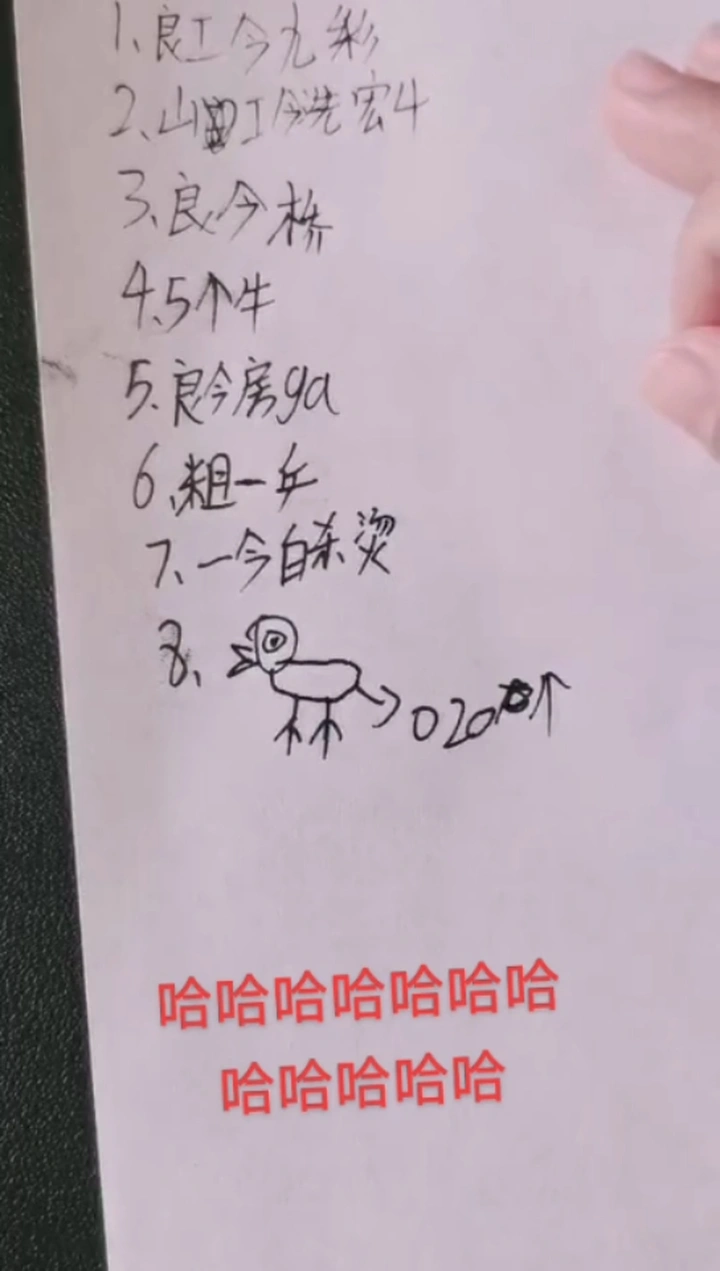 1、良工今九彩
2、山工今洗宏4
3、良今桥
4、5个牛
5、良今房ga
6、粗一乒
7、一今自杀烫
8、020个
哈哈哈哈哈哈哈
哈哈哈哈哈